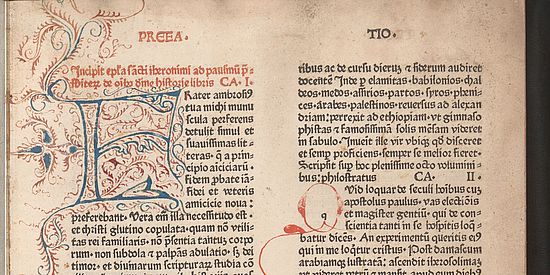 PREEA. TIO.
Incipit epl'a sācti iheronimi ad paulinū p̄=
sbiterz de oib₉ diuine historie libris CA· I·
FRater ambrosi₉
tua michi munu
scula perferens
detulit simul et
suauissimas lit=
teras· q̄ a princi=
pio aiciciarū
fidem ꝓbate iā
fidei et veteris
amicicie noua:
preferebant· Vera em̄ illa necessitudo est·
et christi glutino copulata· quam nō vtili=
tas rei familiaris· nō p̄sentia tantuȝ corpo
rum· non subdola et palpans adulatio· sȝ dei
timor· et diuinarum scripturarȝ studia cō
ribus ac de cursu dieruȝ et siderum audiret
docentē Inde ꝑ elamitas· babilonios· chal
deos· medos· assirios· partos· syros· pheni=
ces· arabes· palestinos· reuersus ad alexan
driam: perrexit ad ethiopiam· vt gimnaso
phistas et famosissimā solis mēsam videret
in sabulo· Inueīt ille vir vbiqȝ qď disceret·
et semꝑ proficiens· semper se melior fieret·
Scripsit sup hoc plenissime octo volumini=
bus: philostratus CA· II·
QVid loquar de seculi hoibus cum
apostolus paulus· vas electiōis·
et magister gentiū· qui de con=
scientia tanti in se hospitis loq̄=
batur dicēs· An experimentū queritis ei₉
qui in me loq̄tur cristus· Post damascum
arabiamqȝ lustratā: ascendit iherosolimaȝ